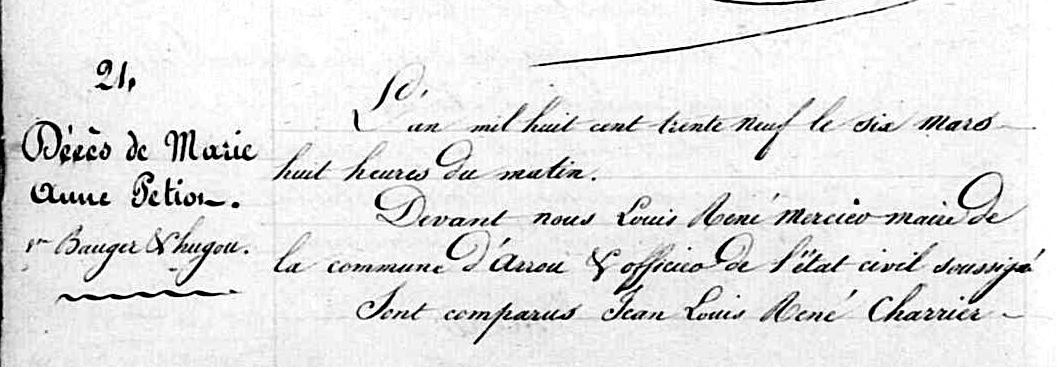 21,
Décès de Marie
Anne Petion.
ve Bauger & hugou.
L'an mil huit cent trente neuf le six mars
huit heures du matin.
Devant nous Louis René Mercier maire de
la commune d'Arrou & officier de l'état civil soussigné
Sont comparus Jean Louis René Charrier